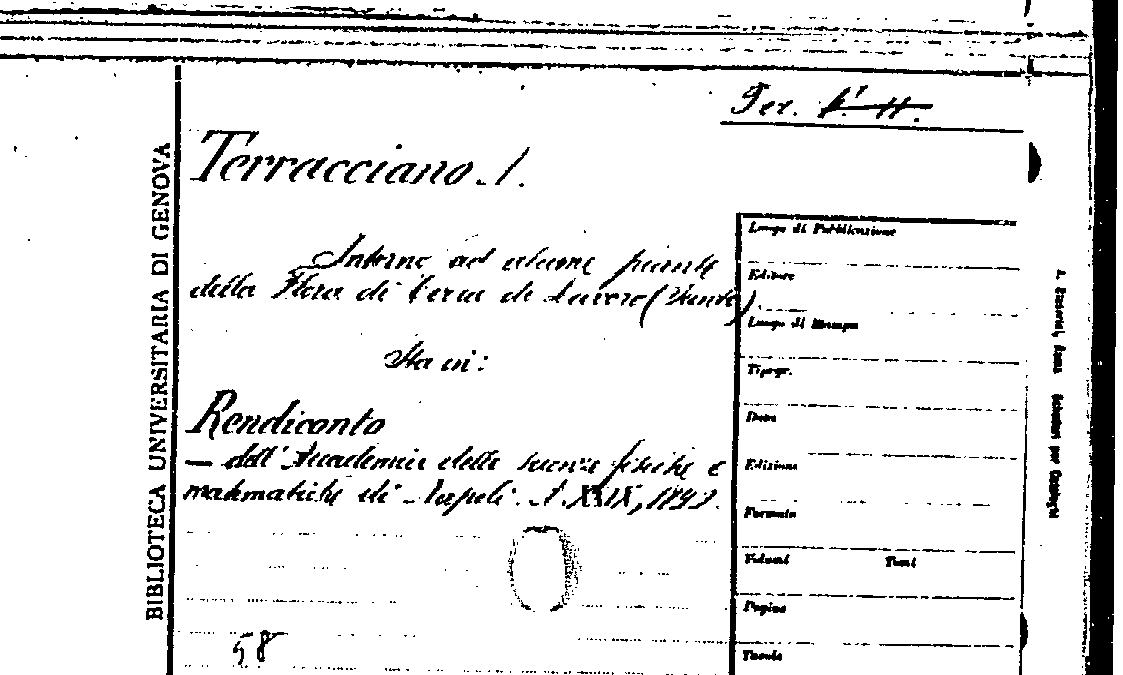 Ter.
Terracciano. A.
Intorno ad alcune piante
della Flora di Terra di Lavoro (Sunto).
Sta in:
Rendiconto
— dell' Accademia delle scienze fisiche e
matematiche di Napoli. A. XXIX, 1890.
58
BIBLIOTECA UNIVERSITARIA DI GENOVA
Luogo di Pubblicazione
Editore
Luogo di Stampa
Tipogr.
Data
Edizione
Formato
Volumi Tomi
Pagine
Tavole
Schedari per Cataloghi